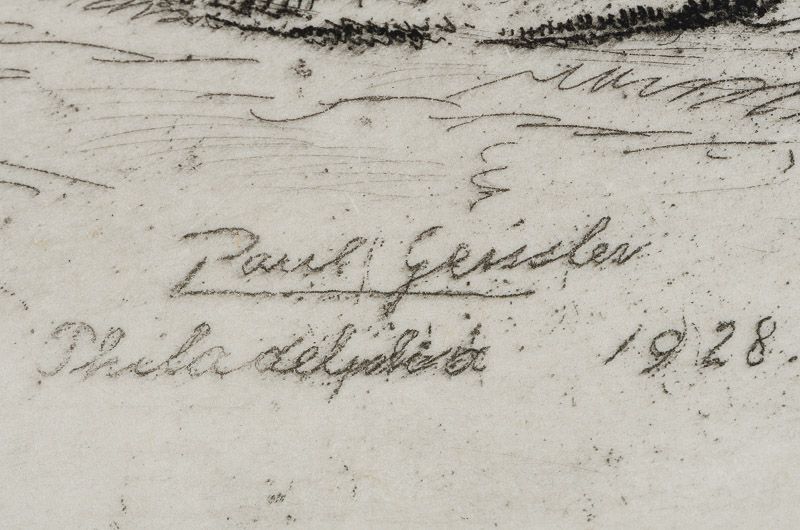 Paul Geissler
Philadelphia 1928.